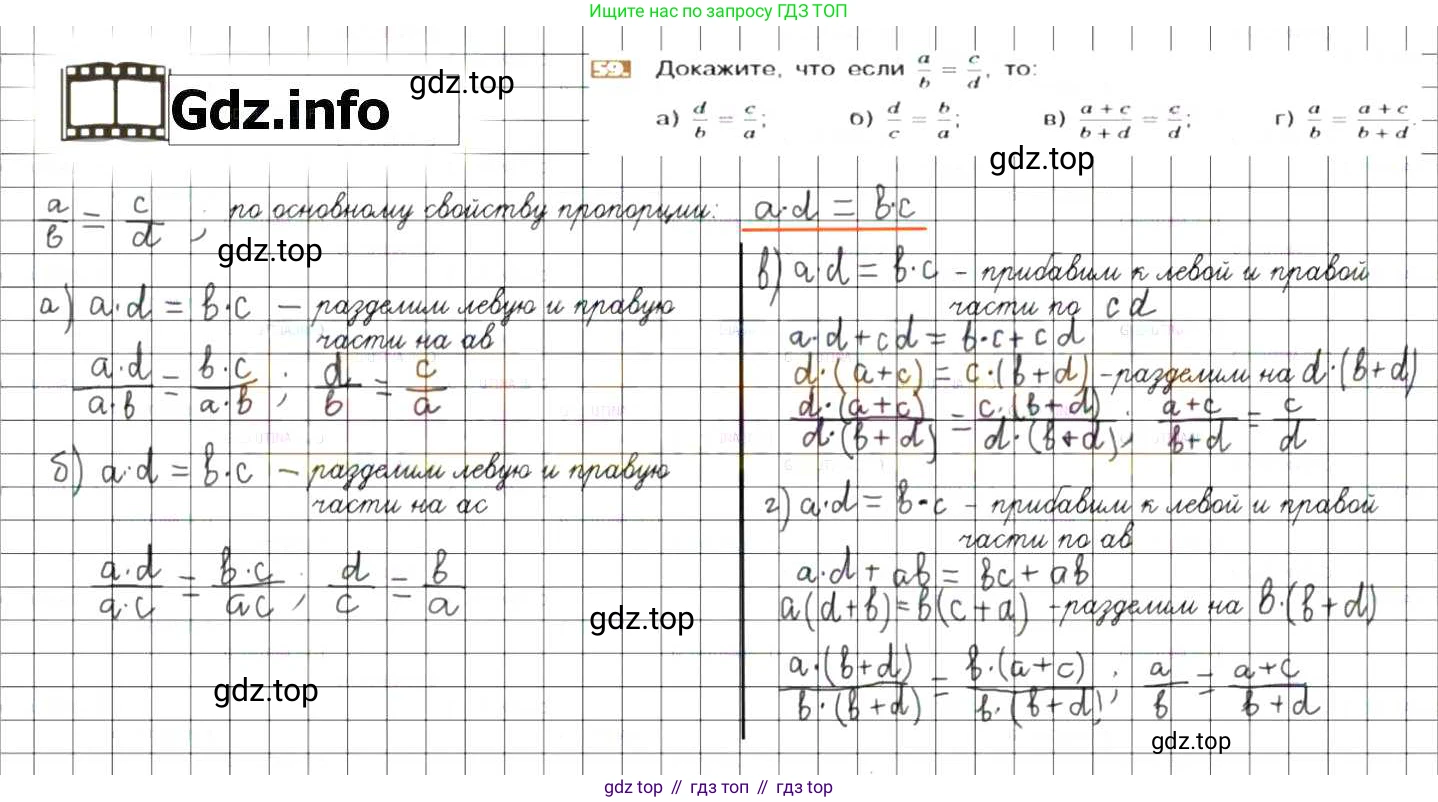 Ищите нас по запросу ГДЗ ТОП
Gdz.info
gdz.top
59. Докажите, что если a/b = c/d, то:
а) d/b = c/a; б) d/c = b/a; в) (a + c)/(b + d) = c/d; г) a/b = (a + c)/(b + d).
gdz.top
a/b = c/d ; по основному свойству пропорции: a·d = b·c
gdz.top
а) a·d = b·c — разделим левую и правую
части на ab
a·d/a·b = b·c/a·b ; d/b = c/a
б) a·d = b·c — разделим левую и правую
части на ac
a·d/a·c = b·c/ac ; d/c = b/a
gdz.top
gdz.top
в) a·d = b·c – прибавим к левой и правой
части по cd
a·d + cd = b·c + cd
d·(a+c) = c·(b+d) – разделим на d·(b+d)
d·(a+c)/d·(b+d) = c·(b+d)/d·(b+d) ; a+c/b+d = c/d
г) a·d = b·c – прибавим к левой и правой
части по ab
a·d + ab = bc + ab
a(d+b) = b(c+a) – разделим на b·(b+d)
a·(b+d)/b·(b+d) = b·(a+c)/b·(b+d) ; a/b = a+c/b+d
gdz.top
gdz top // гдз топ // гдз top